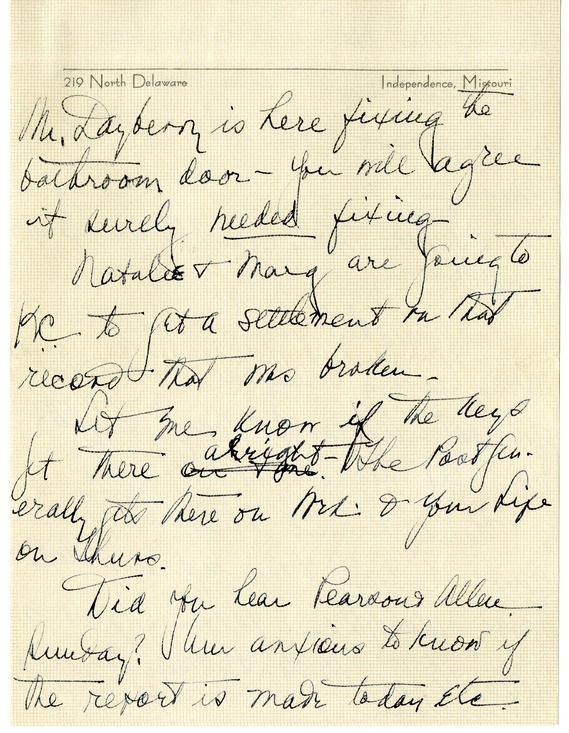 219 North Delaware Independence, Missouri
Mr. Dayberry is here fixing the
bathroom door – you will agree
it surely needed fixing
Natalie & Marg are going to
K.C. to get a settlement on that
record that was broken –
Let me know if the keys
get there on time. alright – The Post gen-
erally gets there on Wed. & your Life
on Thurs.
Did you hear Pearson & Allen
Sunday? I am anxious to know if
the report is made today etc.